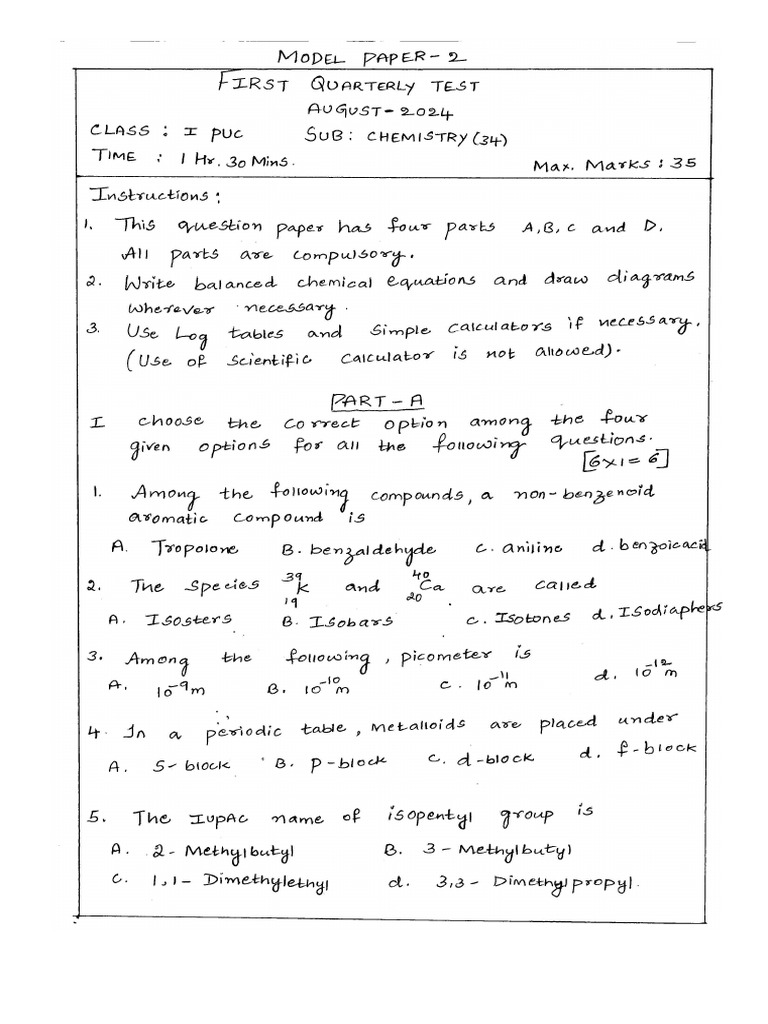 MODEL PAPER-2
FIRST QUARTERLY TEST
AUGUST-2024
CLASS : I PUC SUB: CHEMISTRY (34)
TIME : 1 Hr. 30 Mins. Max. Marks : 35
Instructions :
1. This question paper has four parts A, B, C and D.
All parts are compulsory.
2. Write balanced chemical equations and draw diagrams
wherever necessary.
3. Use Log tables and simple calculators if necessary.
(Use of scientific calculator is not allowed).
PART-A
I choose the correct option among the four
given options for all the following questions.
[6×1= 6]
1. Among the following compounds, a non-benzenoid
aromatic compound is
A. Tropolone B. benzaldehyde C. aniline d. benzoicacid
2. The species ³⁹₁₉K and ⁴⁰₂₀Ca are called
A. Isosters B. Isobars C. Isotones d. Isodiaphers
3. Among the following, picometer is
A. 10⁻⁹m B. 10⁻¹⁰m C. 10⁻¹¹m d. 10⁻¹²m
4. In a periodic table, metalloids are placed under
A. S-block B. p-block C. d-block d. f-block
5. The IUPAC name of isopentyl group is
A. 2-Methylbutyl B. 3-Methylbutyl
C. 1,1-Dimethylethyl d. 3,3-Dimethylpropyl.